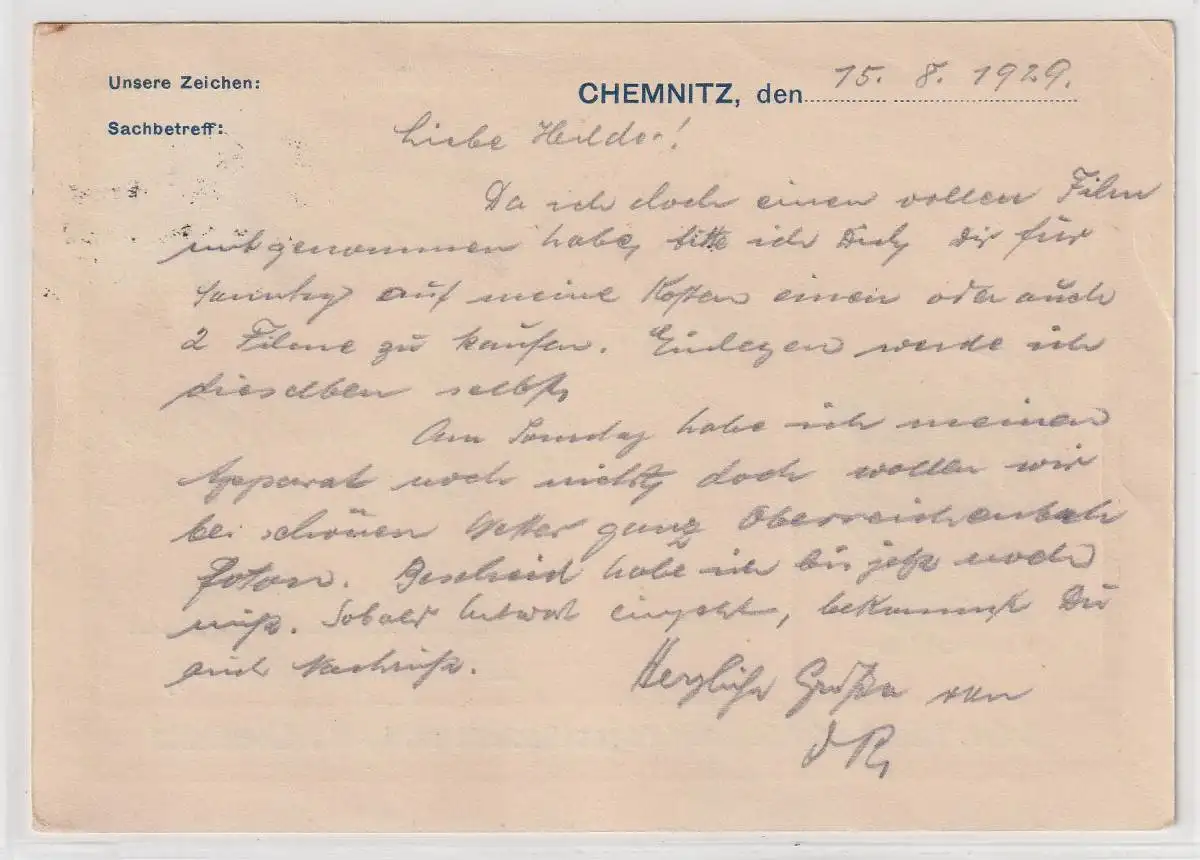 Unsere Zeichen:
CHEMNITZ, den 15. 8. 1929.
Sachbetreff:
Liebe
Da ich doch einen vollen Film
mitgenommen habe, bitte ich Dich, Dir für
Sonntag auf meine Kosten einen oder auch
2 Filme zu kaufen. Einlegen werde ich
dieselben selbst,
Am Sonntag habe ich meinen
Apparat noch nicht, doch wollen wir
bei schönen Wetter ganz Oberreichenbach
Bescheid habe ich bis jetzt noch
nicht. Sobald Antwort eingeht, bekommst Du
auch Nachricht.
Herzliche Grüße von